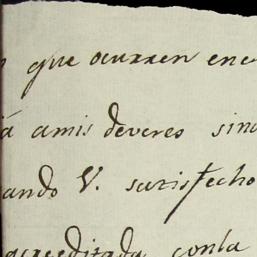 que ocurren en
a amis deveres sin
ando V. satisfecho
acreeditada conla